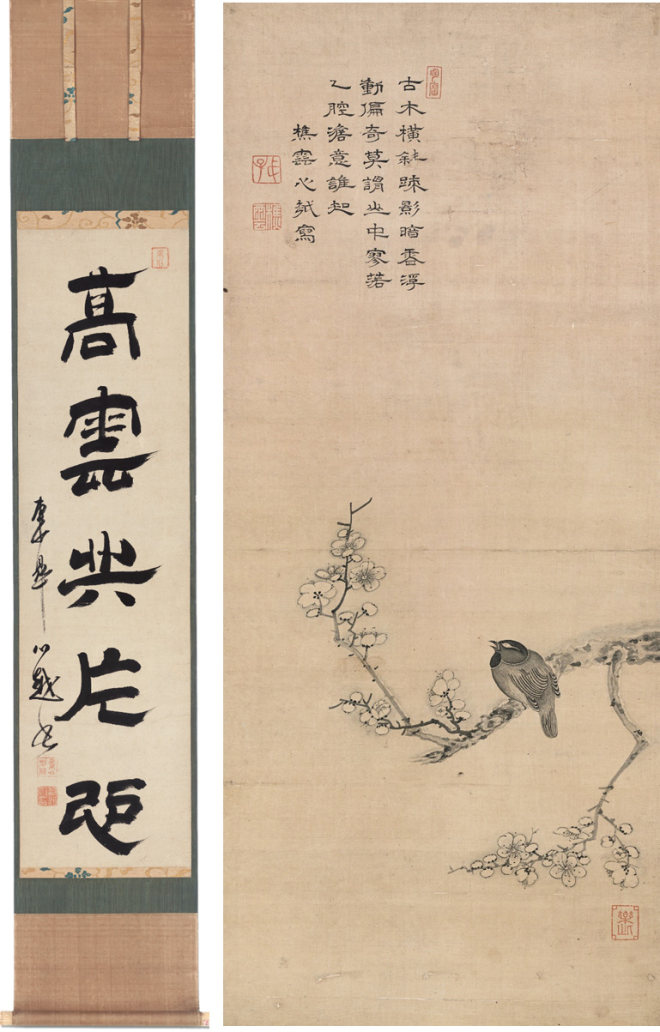 高雲共片心
東皋心越書
古木橫斜疎影暗香浮
動偏奇莫謂山中寥落
乙腔澹意誰知
樵雲心越寫